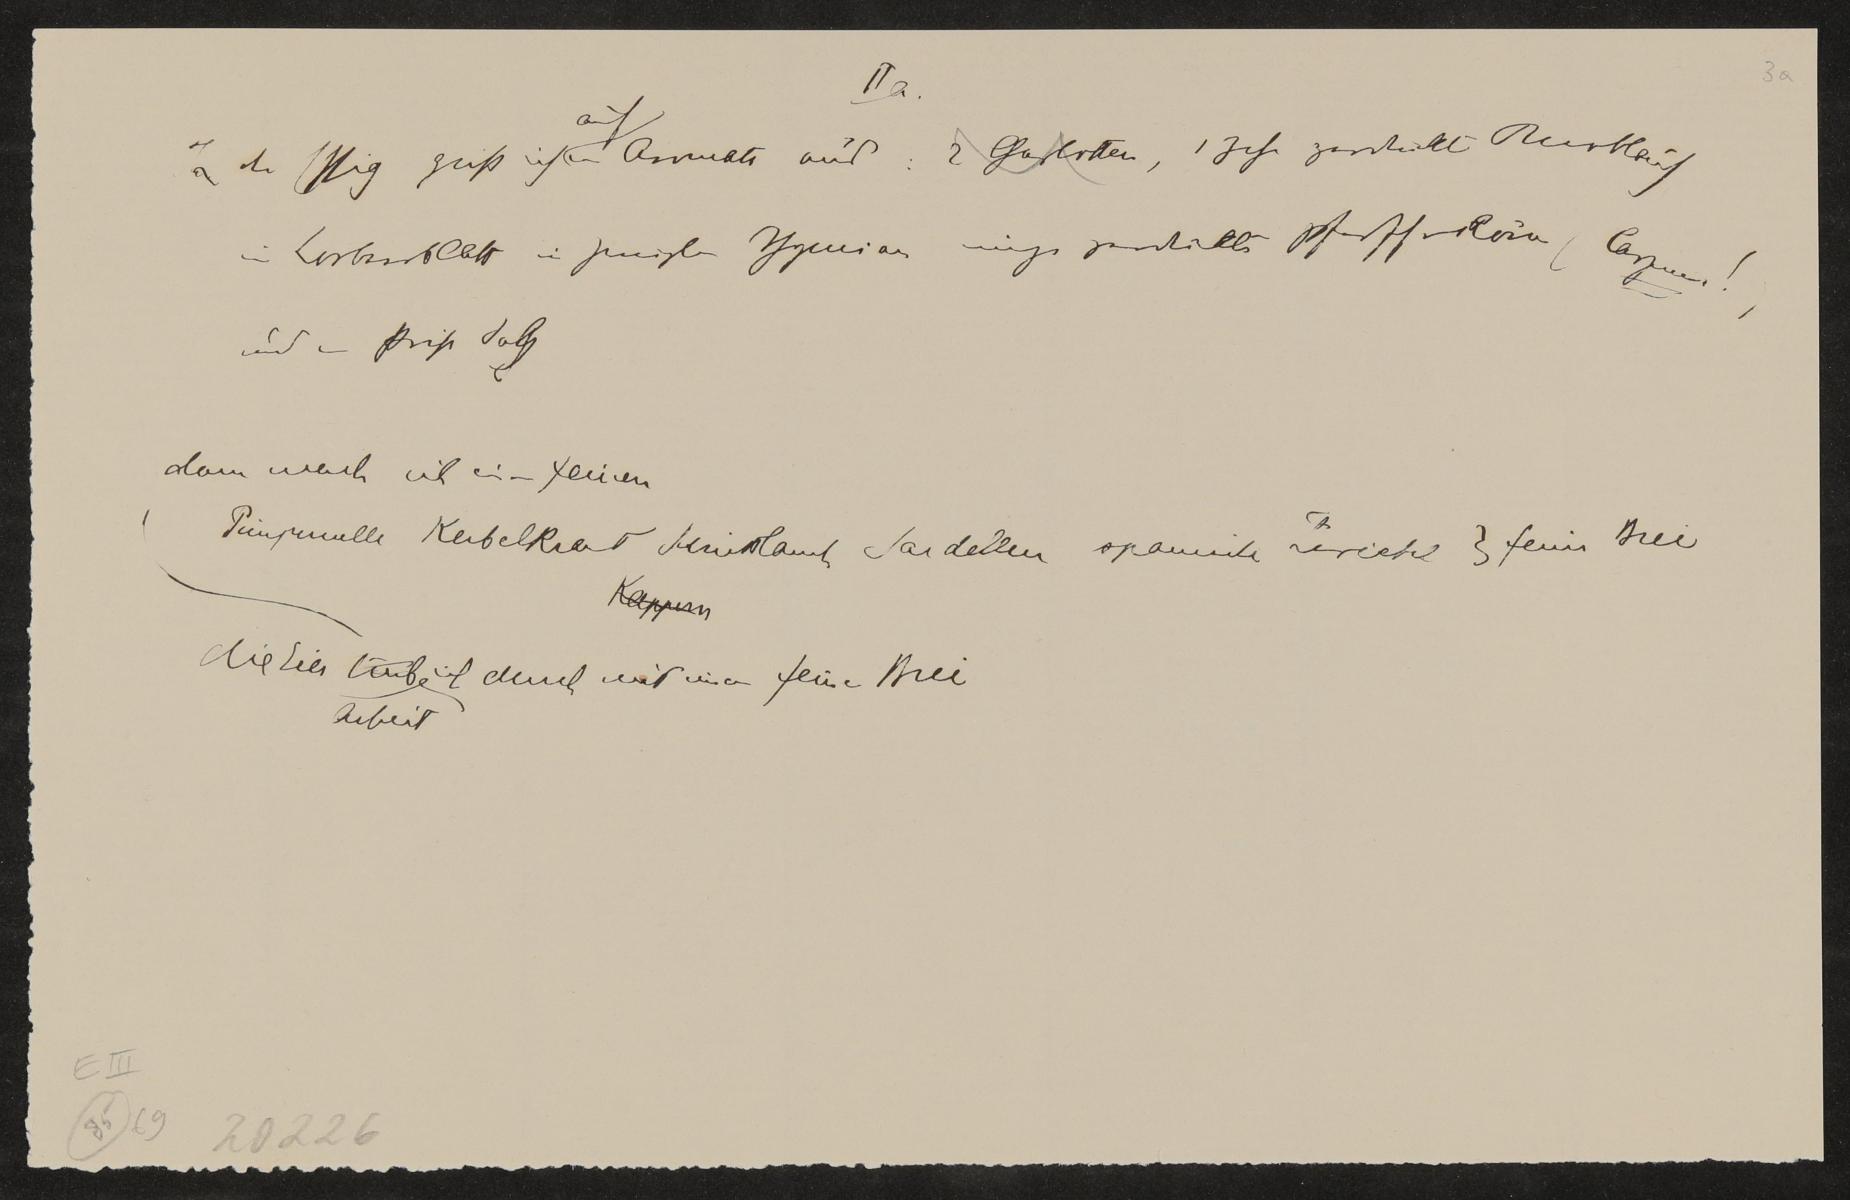 3a
IIa.
auf
den Essig gieß ich Aromate und : 2 Charlotten, 1 Zehe zerdrückt Knoblauch
ein Lorbeerblatt ein Thymian einige zerdrückte Pfefferkörner ( Cayenne ! )
und eine Prise Salz
dann mach ich einen feinen
Pimpernelle Kerbelkraut Schnittlauch Sardellen spanische } fein Brei
Kappern
die Eier ich durch mit einer feinen Brei
Arbeit
E III
85 69 20226